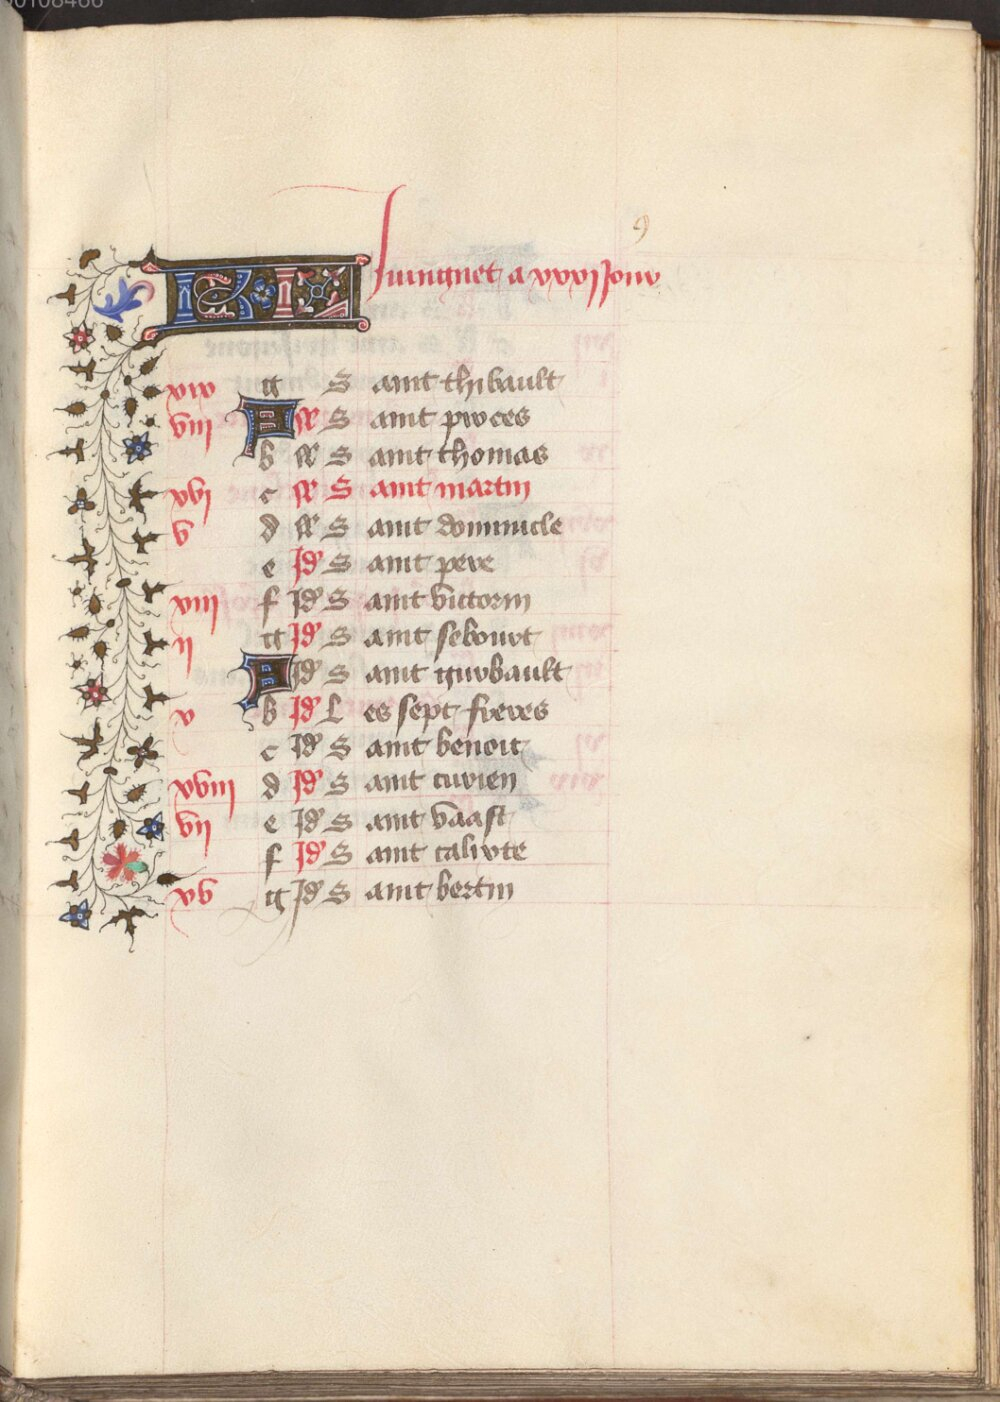 00108466
9
KL Juingnet a xxxi Jour
xix g S aint thibault
viii A ff S aint proces
b ff S aint thomas
xvi c ff S aint martin
v d ff S aint dominicle
e Jd' S aint pere
xiii f Jd' S aint victorin
ii g Jd' S aint sebourt
A Jd' S aint gurbault
x b Jd' L es sept freres
c Jd' S aint benoit
xviii d Jd' S aint turien
vii e Jd' S aint vaast
f Jd' S aint calixte
xv g Jd' S aint bertin